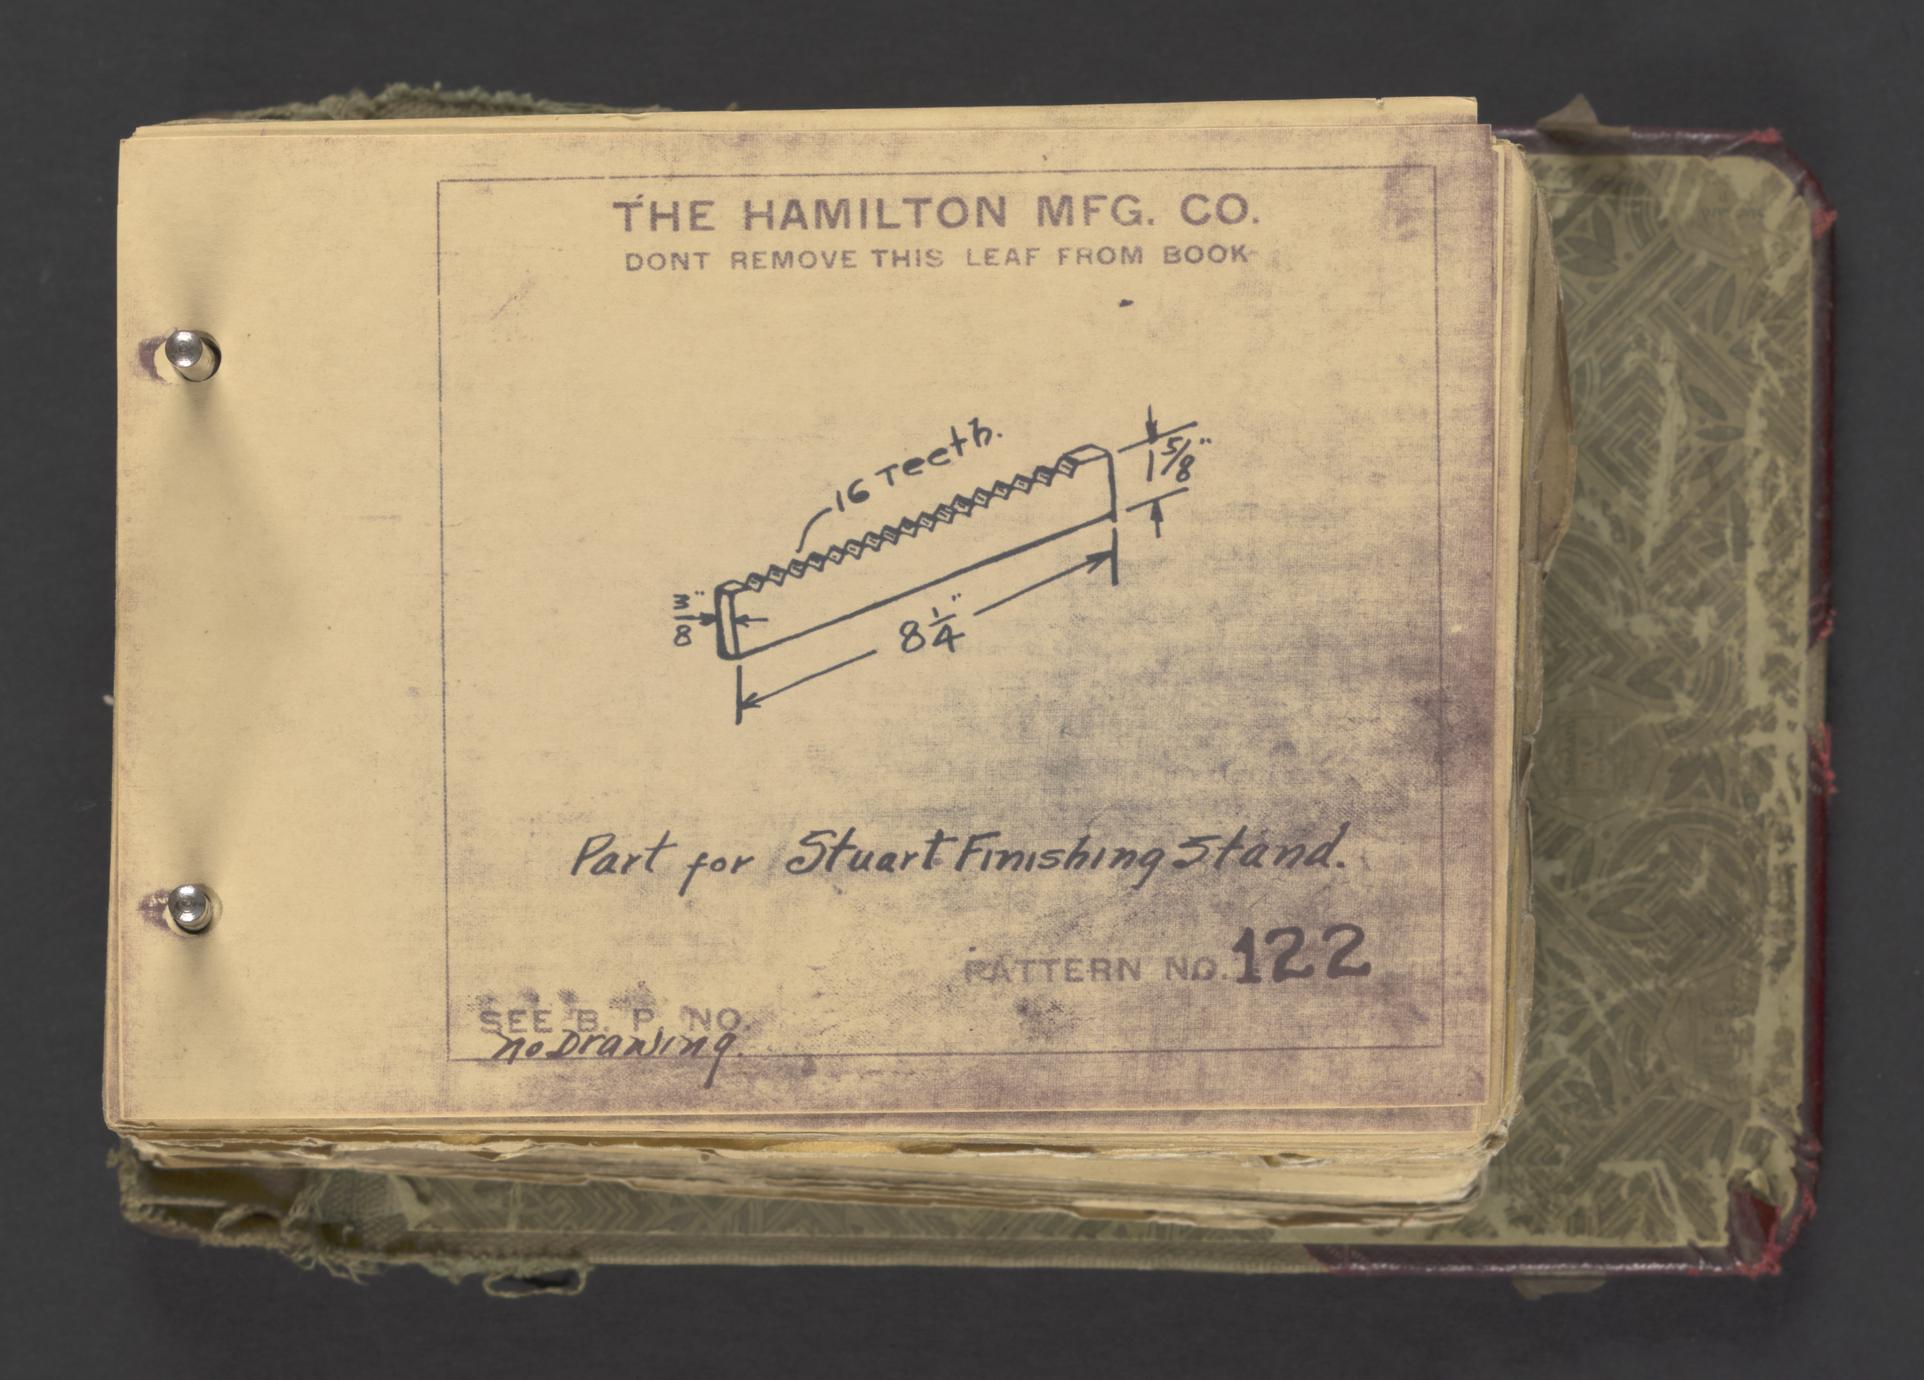 THE HAMILTON MFG. CO.
DONT REMOVE THIS LEAF FROM BOOK
16 Teeth.
1 5/8"
3/8"
8 1/4"
Part for Stuart Finishing Stand.
PATTERN NO. 122
SEE B. P. NO.
no Drawing.